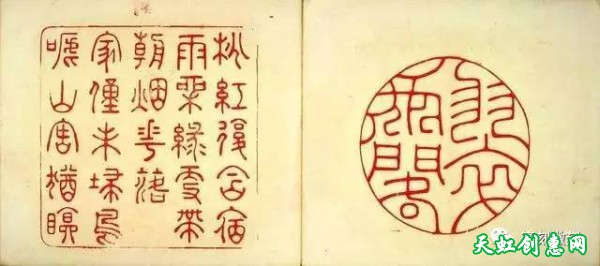 桃紅復含宿
雨柳綠更帶
朝烟花落
家僮未埽鳥
啼山客猶眠
天虹创意网